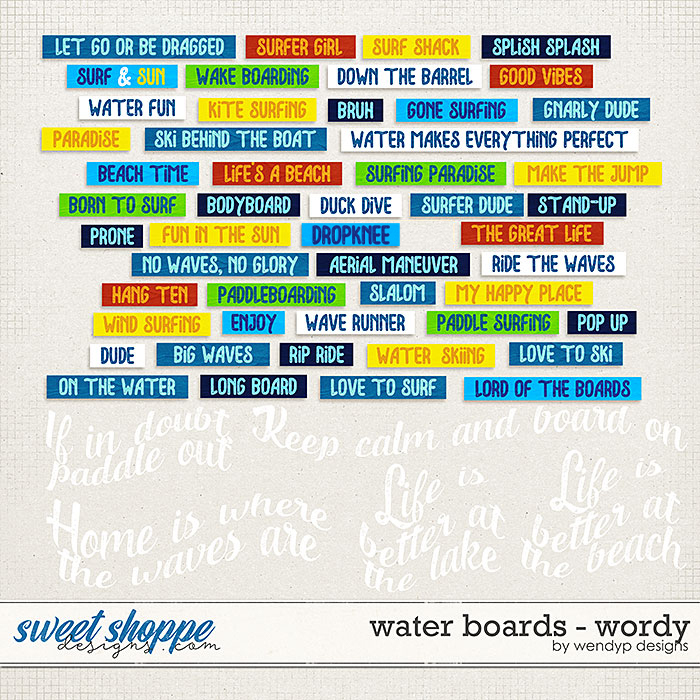 LET GO OR BE DRAGGED SURFER GIRL SURF SHACK SPLISH SPLASH
SURF & SUN WAKE BOARDING DOWN THE BARREL GOOD VIBES
WATER FUN KITE SURFING BRUH GONE SURFING GNARLY DUDE
PARADISE SKI BEHIND THE BOAT WATER MAKES EVERYTHING PERFECT
BEACH TIME LIFE'S A BEACH SURFING PARADISE MAKE THE JUMP
BORN TO SURF BODYBOARD DUCK DIVE SURFER DUDE STAND-UP
PRONE FUN IN THE SUN DROPKNEE THE GREAT LIFE
NO WAVES, NO GLORY AERIAL MANEUVER RIDE THE WAVES
HANG TEN PADDLEBOARDING SLALOM MY HAPPY PLACE
WIND SURFING ENJOY WAVE RUNNER PADDLE SURFING POP UP
DUDE BIG WAVES RIP RIDE WATER SKIING LOVE TO SKI
ON THE WATER LONG BOARD LOVE TO SURF LORD OF THE BOARDS
If in doubt
paddle out
Keep calm and board on
Home is where
the waves are
Life is
better at
the lake
Life is
better at
the beach
sweet shoppe
designs.com
water boards - wordy
by wendyp designs